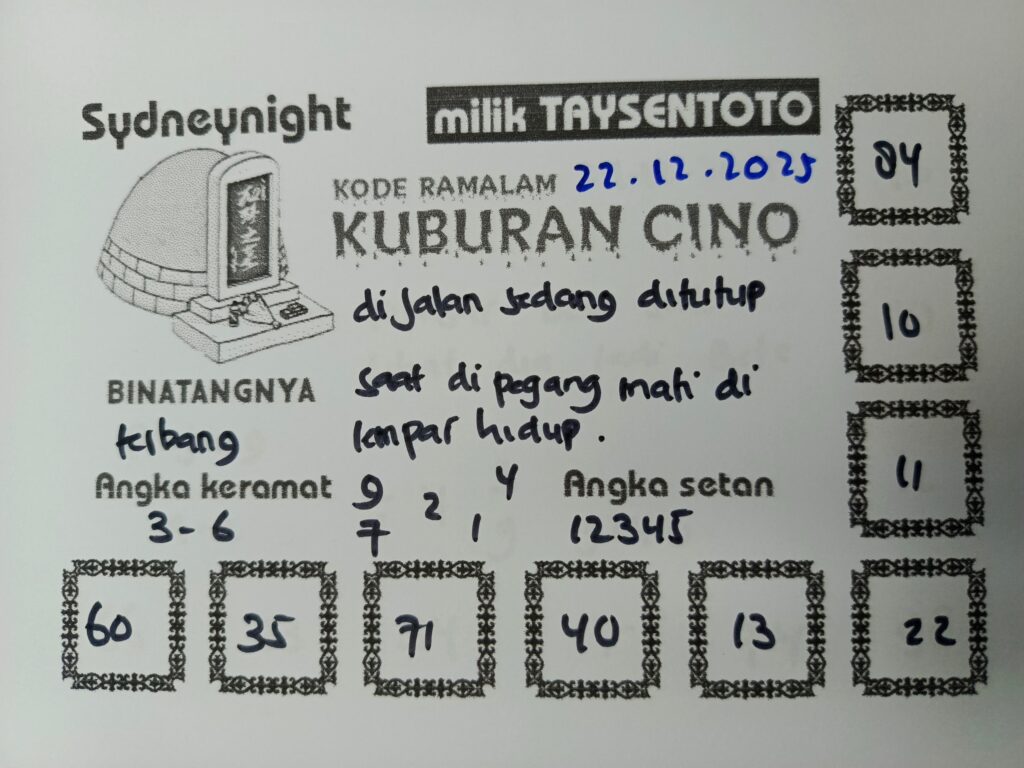 Sydneynight
milik TAYSENTOTO
KODE RAMALAM 22.12.2025
KUBURAN CINO
di jalan sedang ditutup
saat di pegang mati di
lempar hidup.
BINATANGNYA
terbang
Angka keramat
3-6
9 2 4
7 1
Angka setan
12345
10
11
60 35 71 40 13 22